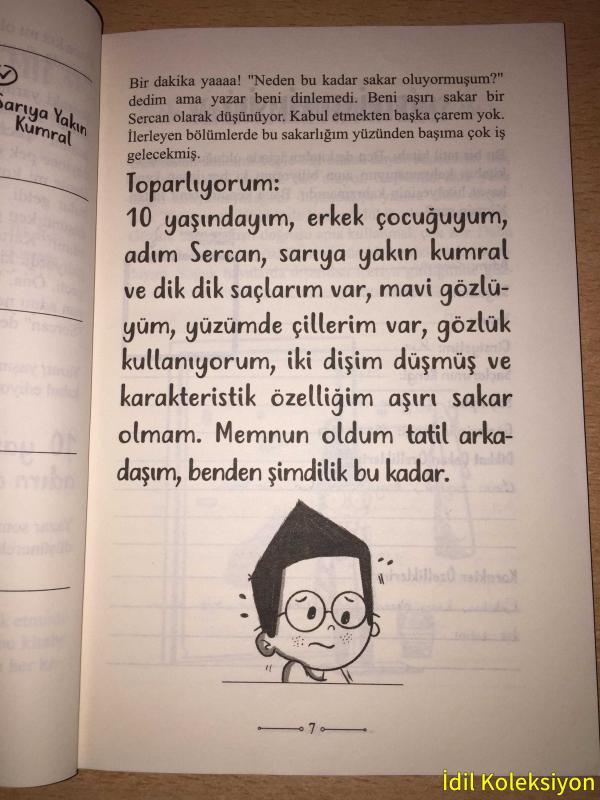 Sarıya Yakın
Kumral
Bir dakika yaaaa! "Neden bu kadar sakar oluyormuşum?"
dedim ama yazar beni dinlemedi. Beni aşırı sakar bir
Sercan olarak düşünüyor. Kabul etmekten başka çarem yok.
İlerleyen bölümlerde bu sakarlığım yüzünden başıma çok iş
gelecekmiş.
Toparlıyorum:
10 yaşındayım, erkek çocuğuyum,
adım Sercan, sarıya yakın kumral
ve dik dik saçlarım var, mavi gözlü-
yüm, yüzümde çillerim var, gözlük
kullanıyorum, iki dişim düşmüş ve
karakteristik özelliğim aşırı sakar
olmam. Memnun oldum tatil arka-
daşım, benden şimdilik bu kadar.
7
İdil Koleksiyon